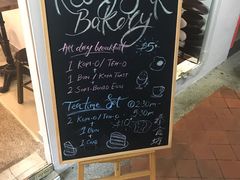 Bakery
All day breakfast $5
1 Kopi-O / Teh-O
1 Bun / Kaya Toast
2 Soft-Boiled Eggs
Teatime Set @ 2:30pm
- 5:30pm
2 Kopi-O / Teh-O
1 Bun
1 Cake